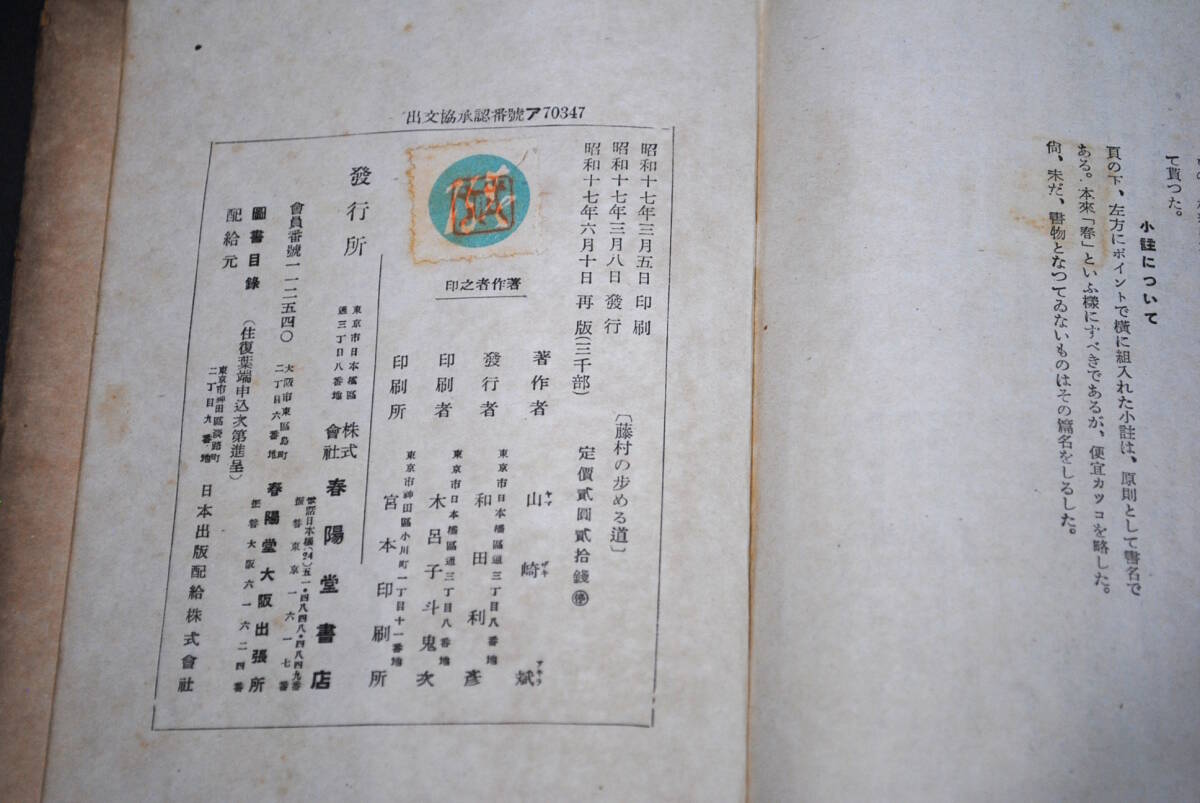 て貰つた。
小註について
頁の下、左方にポイントで横に組入れた小註は、原則として書名で
ある。本來「春」といふ樣にすべきであるが、便宜カッコを略した。
尙、未だ、書物となつてゐないものはその篇名をしるした。
出文協承認番號ア70347
昭和十七年三月五日 印刷
昭和十七年三月八日 發行
昭和十七年六月十日 再版(三千部)
〔藤村の步める道〕
定價貳圓貳拾錢㊝
著作者之印
著作者 山崎斌
ヤマ ザキ アキラ
發行者 東京市日本橋區通三丁目八番地
和田利彥
印刷者 東京市日本橋區通三丁目八番地
木呂子斗鬼次
印刷所 東京市神田區小川町一丁目十一番地
宮本印刷所
發行所
東京市日本橋區
通三丁目八番地
株式
會社 春陽堂書店
電話日本橋(24)五一・四八四八・四八四九番
振替東京一六一七番
會員番號一一二五四〇
大阪市東區島町
二丁目六番地
春陽堂大阪出張所
振替大阪六一六二四番
圖書目錄 (往復葉端申込次第進呈)
配給元
東京市神田區淡路町
二丁目九番地
日本出版配給株式會社